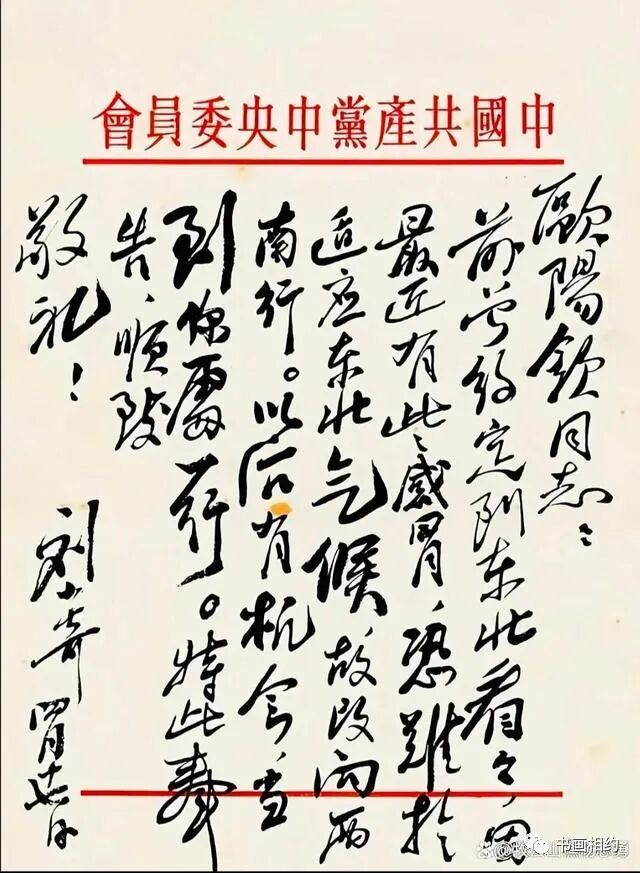 中國共產黨中央委員會
歐陽欽同志：
前曾约定到东北看看，因
最近有些感冒，恐難於
适应东北气候，故改向西
南行。以后有机会，当
到你處一行。特此奉
告，順致
敬礼！
刘少奇 四月
书画相约